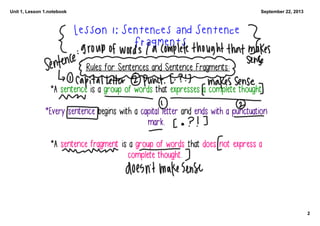 Unit 1, Lesson 1.notebook
September 22, 2013
Lesson 1: Sentences and Sentence
Fragments
Sentence: group of words / a complete thought that makes sense
Rules for Sentences and Sentence Fragments:
① Capital letter ② Punct. [.?!] makes sense
*A sentence is a group of words that expresses a complete thought.
① ②
*Every sentence begins with a capital letter and ends with a punctuation
mark. [.?!]
*A sentence fragment is a group of words that does not express a
complete thought.
doesn't make sense
2